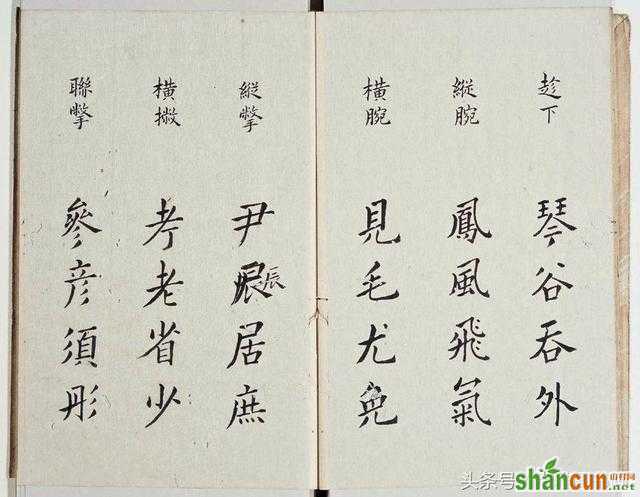 趁下
琴谷吞外
縱腕
鳳風飛氣
橫腕
見毛尤
縱撆
尹辰居庶
橫撇
考老省少
聯撆
參彦須彤
头条号
shancun
.net